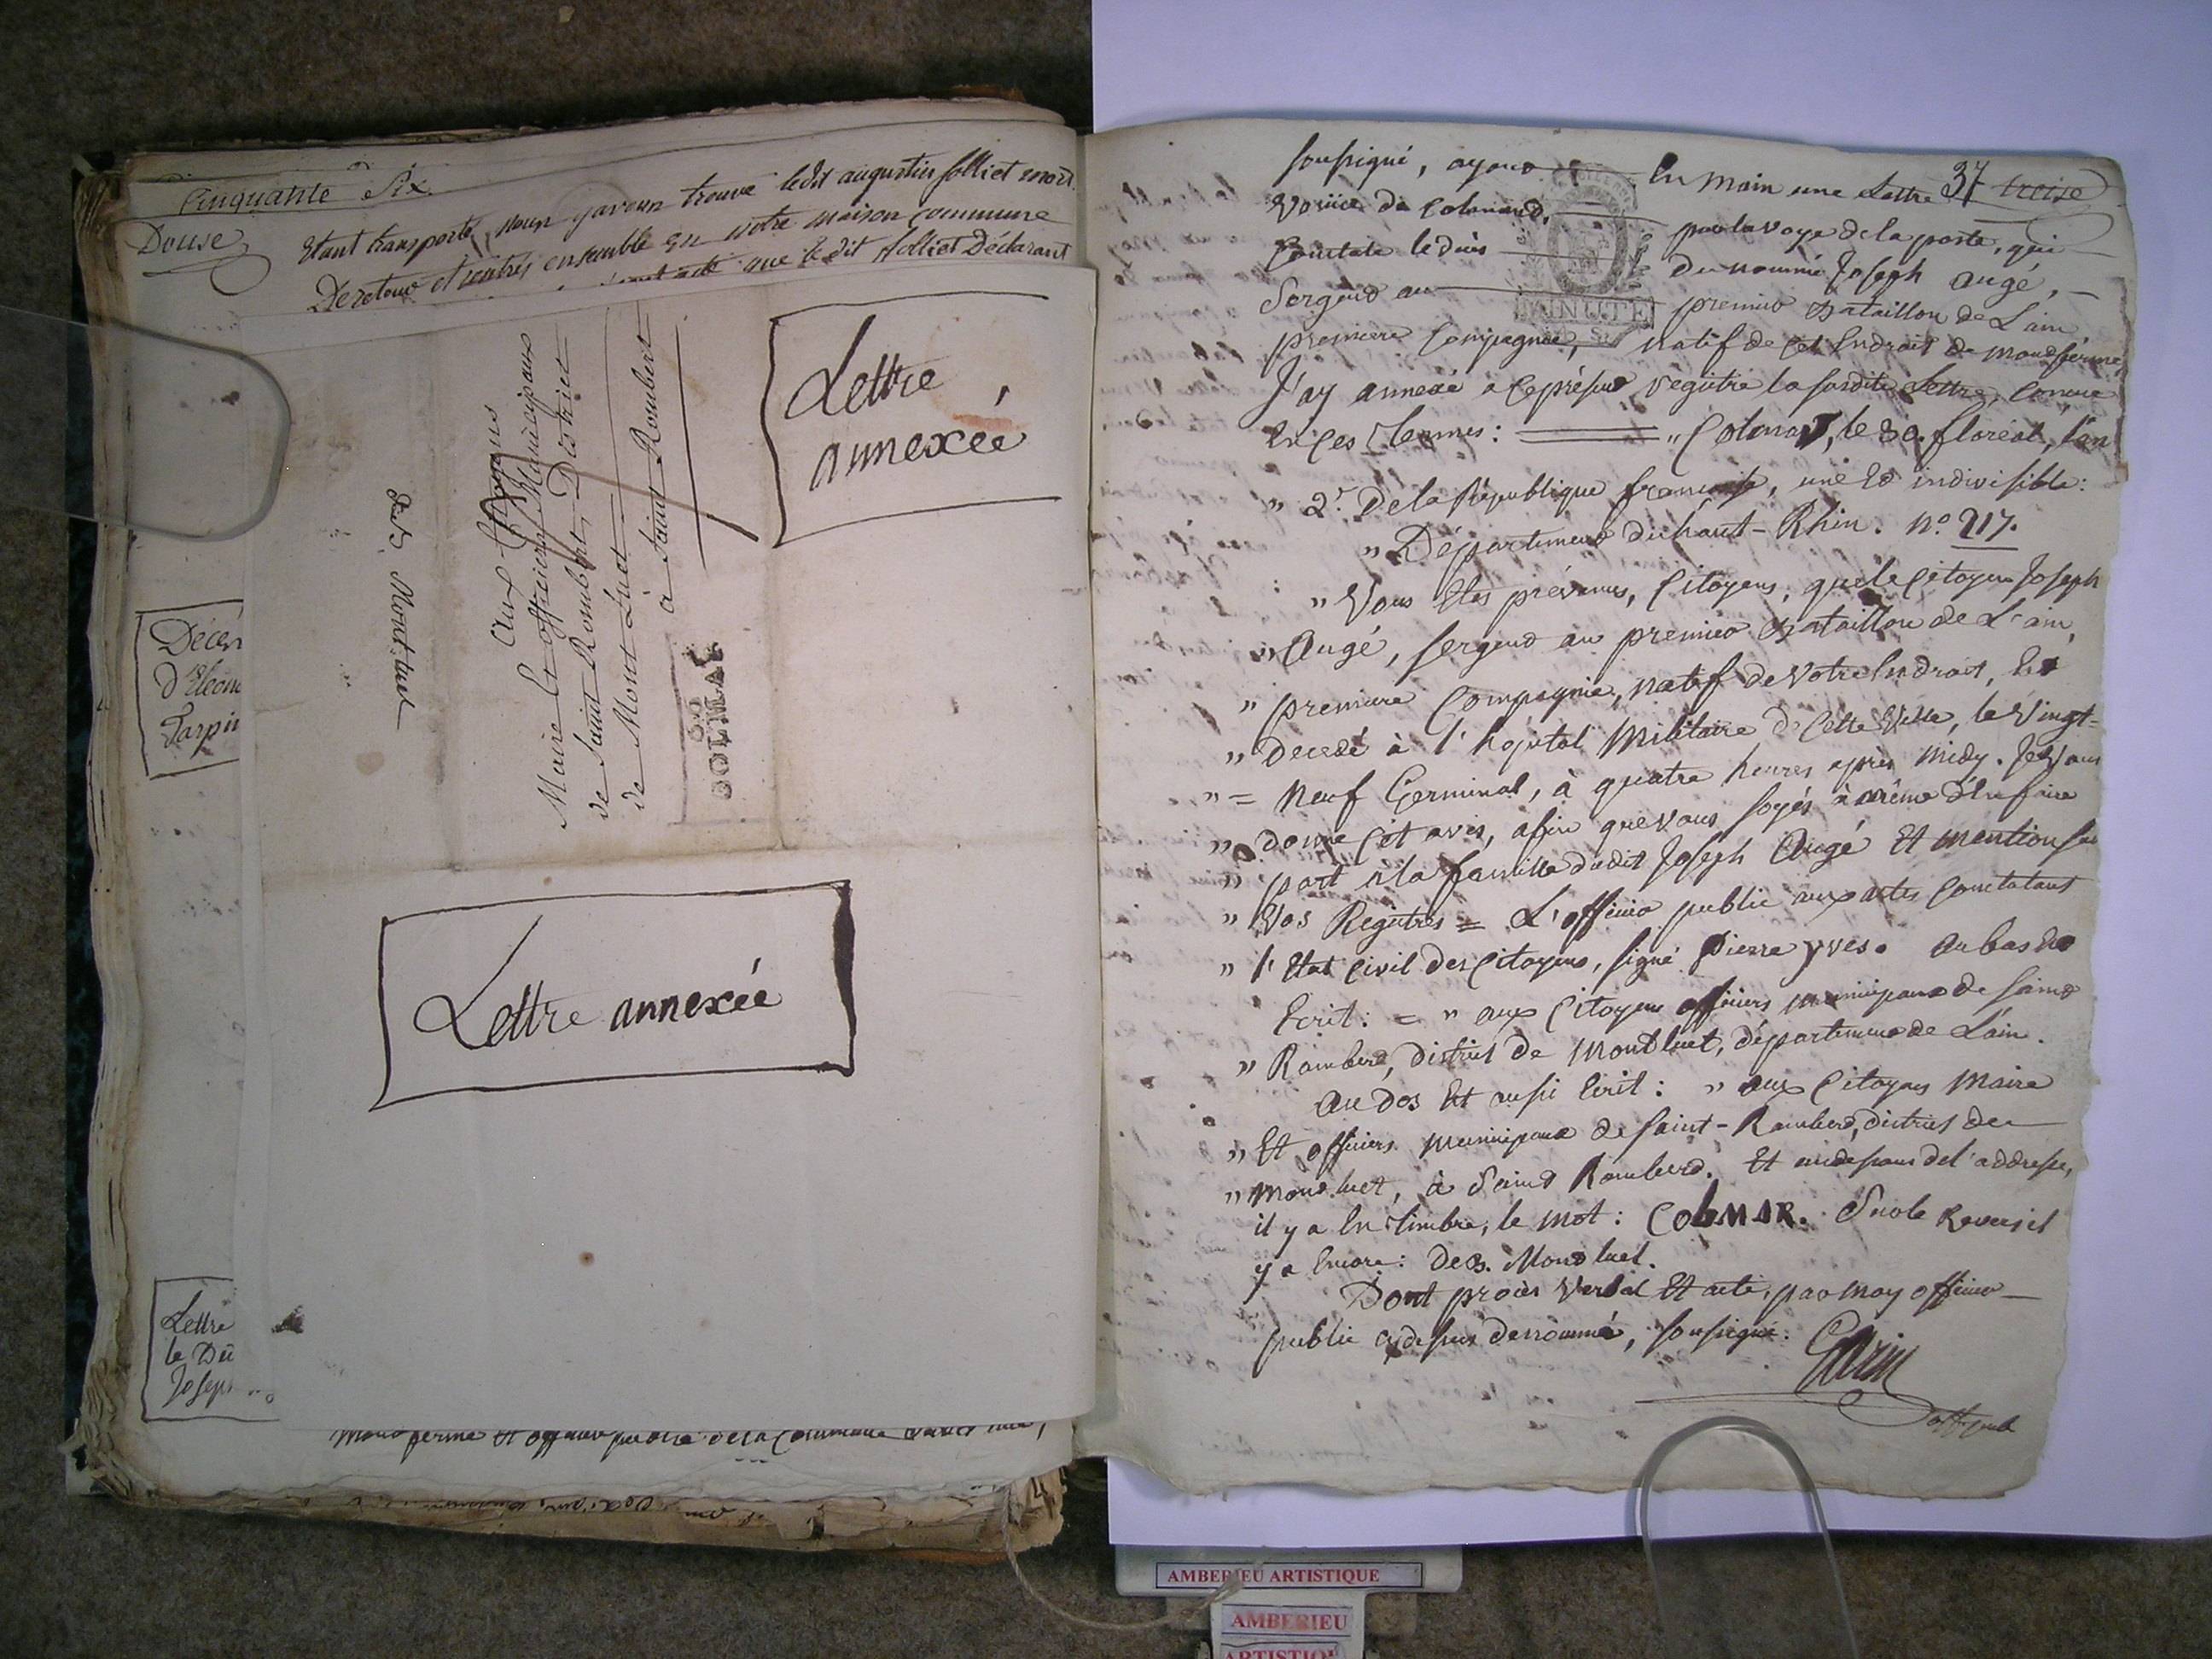 Cinquante Six
Douse
Etant transporté, nous y avons trouvé ledit augustin Solliet mort.
De retour et rentrés ensemble en notre maison Commune
que le dit Solliet Déclarant
Lettre
annexée
Aux Citoyens
Maire Et officiers Municipaux
de Saint Rombert, District
de Mont Luet
à Saint Rombert
68
COLMAR
des. Montluel
Lettre annexée
Décen
d'Eleono
Tarpin
Lettre
le Dé
Josep
Montferme Et officier public de la Commune
37 treise
soussigné, ayant En main une Lettre
venüe de Colmard, par la voye de la poste, qui
Constate le décès du nommé Joseph augé,
Sergend au premier Bataillon de L'ain
premiere Compagnie, natif de Cet Endroit de montferme,
J'ay annexé a Ce présent registre la susdite Lettre, Concue
En Ces termes : = " Colmar, le 30. floréal, l'an
" 2.e De la République francaise, une Et indivisible :
" Département du haut-Rhin. N.o 217.
" Vous Etes prévenus, Citoyens, que le Citoyen Joseph
" Augé, sergend au premier Bataillon de L'ain,
" premiere Compagnie, natif de Votre Endroit, Est
" Decedé à l'hopital Militaire de Cette Ville, le Vingt=
" = Neuf Germinal, à quatre heures apres midy. Je Vous
" donne Cet avis, afin que vous soyés à même d'En faire
" part à la famille dudit Joseph Augé Et mention sur
" Vos Registres = L'officier public aux actes Constatant
" l'Etat Civil des Citoyens, signé Pierre yves. au bas Est
Ecrit : = " aux Citoyens officiers municipaux de Saint
" Rambert, District de Montluet, département de L'ain.
Au dos Est aussi Ecrit : " aux Citoyens Maire
" Et officiers municipaux de Saint-Rambert, district de
" Montluet, à Saint Rambert. Et au dessous de l'addresse,
il y a En timbre, le mot : COLMAR. Sur le Revers il
y a Encore : des. Montluel.
Dont procès Verbal Et acte, par moy officier
public cy dessus dénommé, soussigné.
off. pub
MINUTE
AMBERIEU ARTISTIQUE
AMBERIEU
ARTISTIQU